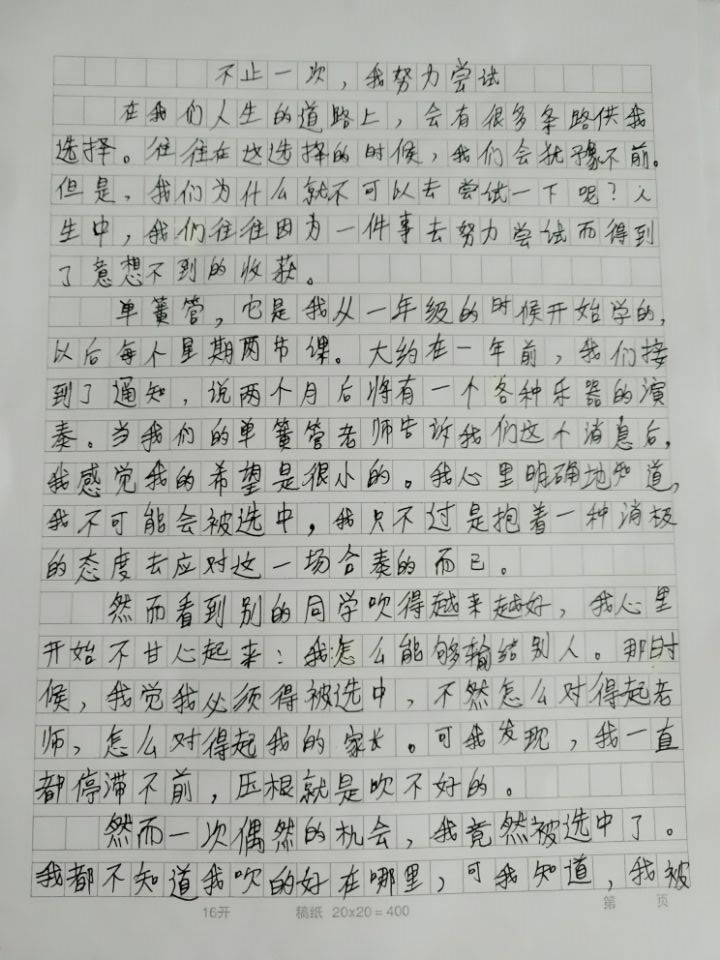 不止一次，我努力尝试
在我们人生的道路上，会有很多条路供我
选择。往往在这选择的时候，我们会犹豫不前。
但是，我们为什么就不可以去尝试一下呢？人
生中，我们往往因为一件事去努力尝试而得到
了意想不到的收获。
单簧管，它是我从一年级的时候开始学的，
以后每个星期两节课。大约在一年前，我们接
到了通知，说两个月后将有一个各种乐器的演
奏。当我们的单簧管老师告诉我们这个消息后，
我感觉我的希望是很小的。我心里明确地知道，
我不可能会被选中，我只不过是抱着一种消极
的态度去应对这一场合奏的而已。
然而看到别的同学吹得越来越好，我心里
开始不甘心起来：我怎么能够输给别人。那时
候，我觉我必须得被选中，不然怎么对得起老
师，怎么对得起我的家长。可我发现，我一直
都停滞不前，压根就是吹不好的。
然而一次偶然的机会，我竟然被选中了。
我都不知道我吹的好在哪里，可我知道，我被
16开 稿纸 20x20=400 第 页